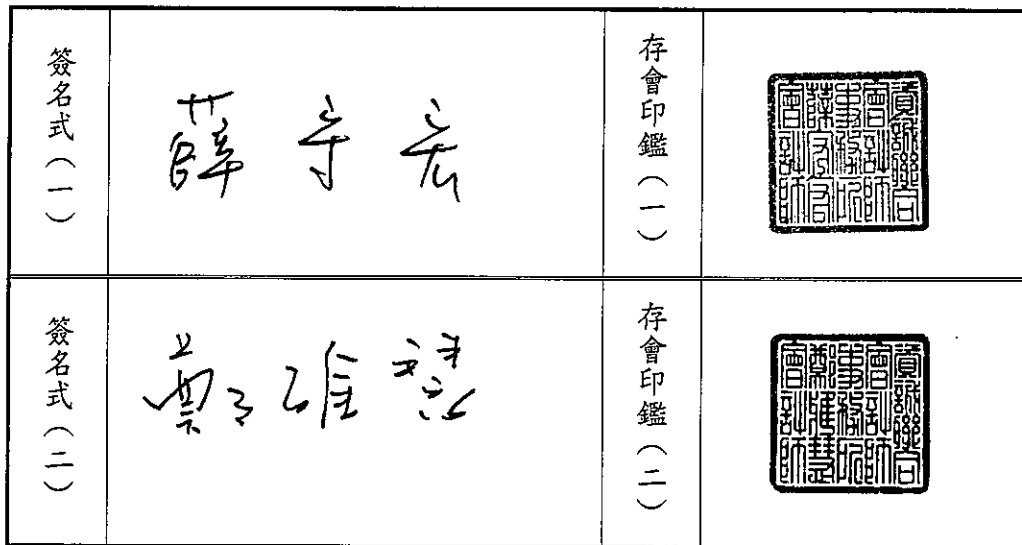 簽名式(一)
薛守宏
存會印鑑(一)
資誠聯合
會計師
事務所
薛守宏
會計師
簽名式(二)
鄭雅慧
存會印鑑(二)
資誠聯合
會計師
事務所
鄭雅慧
會計師